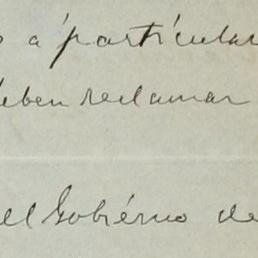 o á particular
deben reclamar
el Gobierno de